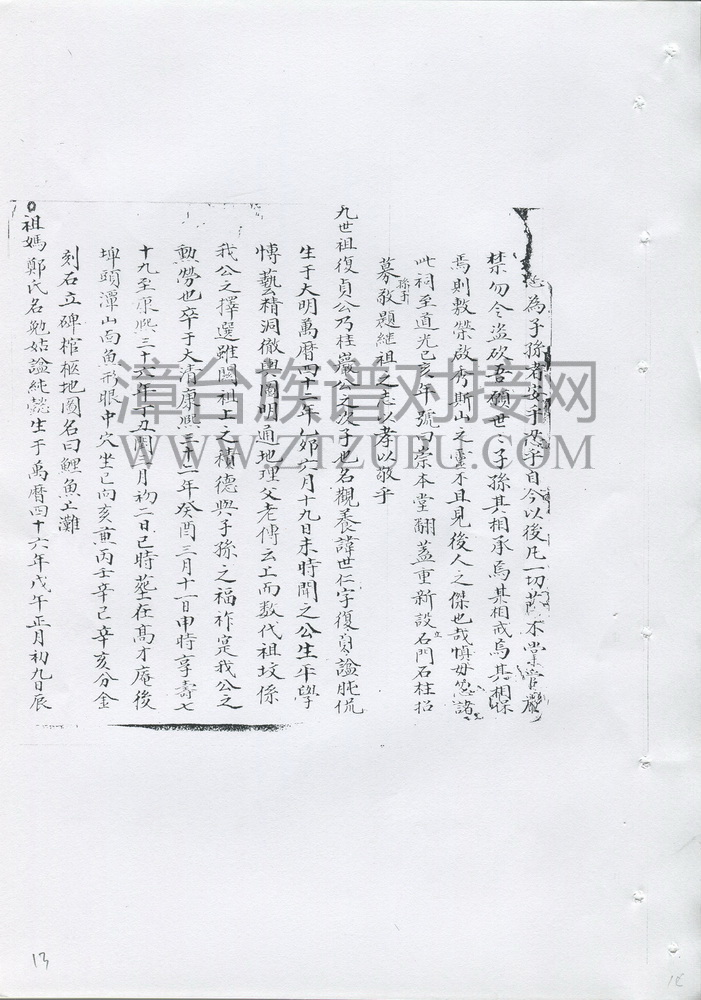 為子孫者安于決乎自今以後凡一切
禁勿令盜砍吾願世〻子孫其相承焉其相戒焉其相保
焉則敷榮啟秀斯山之靈不且見後人之傑也哉慎毋忽諸
此祠至道光己亥年號曰崇本堂翻蓋重新設立石門石柱招
募孫子敬題繼祖之志以孝以敬乎
九世祖復貞公乃柱巖公之次子也名觀養諱世仁字復貞諡肫侃
生于大明萬曆四十三年乙卯六月十九日未時聞之公生平學
博藝精洞徹輿圖明通地理父老傳云上而数代祖坟係
我公之擇選雖闗祖上之積德與子孫之福祚寔我公之
勲勞也卒于大清康熙三十二年癸酉三月十一日申時享壽七
十九至康熙三十六年丁丑閏三月初二日巳時塟在髙才庵後
埤頭潭山面魚形眼中穴坐巳向亥兼丙壬辛巳辛亥分金
刻石立碑棺柩地圖名曰鯉魚上灘
祖媽鄭氏名勉姑諡純懿生于萬曆四十六年戊午正月初九日辰
漳台族谱对接网
WWW.ZTZUPU.COM
13